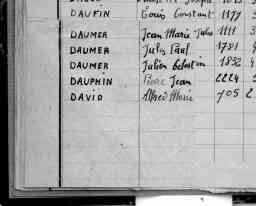 DAUFIN Louis Constant 1177 3
DAUMER Jean Marie Jules 1111 3
DAUMER Jules Paul 1781 4
DAUMER Julien Célestin 1832 4
DAUPHIN Pierre Jean 2224 5
DAVID Alfred Marie 705 2